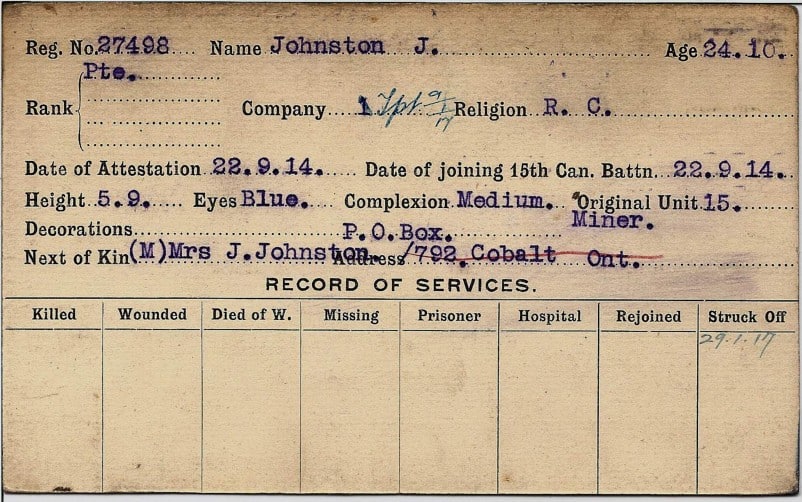 Reg. No. 27498 Name Johnston J. Age 24.10.
Pte.
Rank Company 1 Tpt 9/1/17 Religion R. C.
Date of Attestation 22.9.14. Date of joining 15th Can. Battn. 22.9.14.
Height 5.9. Eyes Blue. Complexion Medium. Original Unit 15.
Miner.
Decorations
P.O.Box.
Next of Kin (M)Mrs J.Johnston. Address 792. Cobalt Ont.
RECORD OF SERVICES.
Killed Wounded Died of W. Missing Prisoner Hospital Rejoined Struck Off
29.1.17